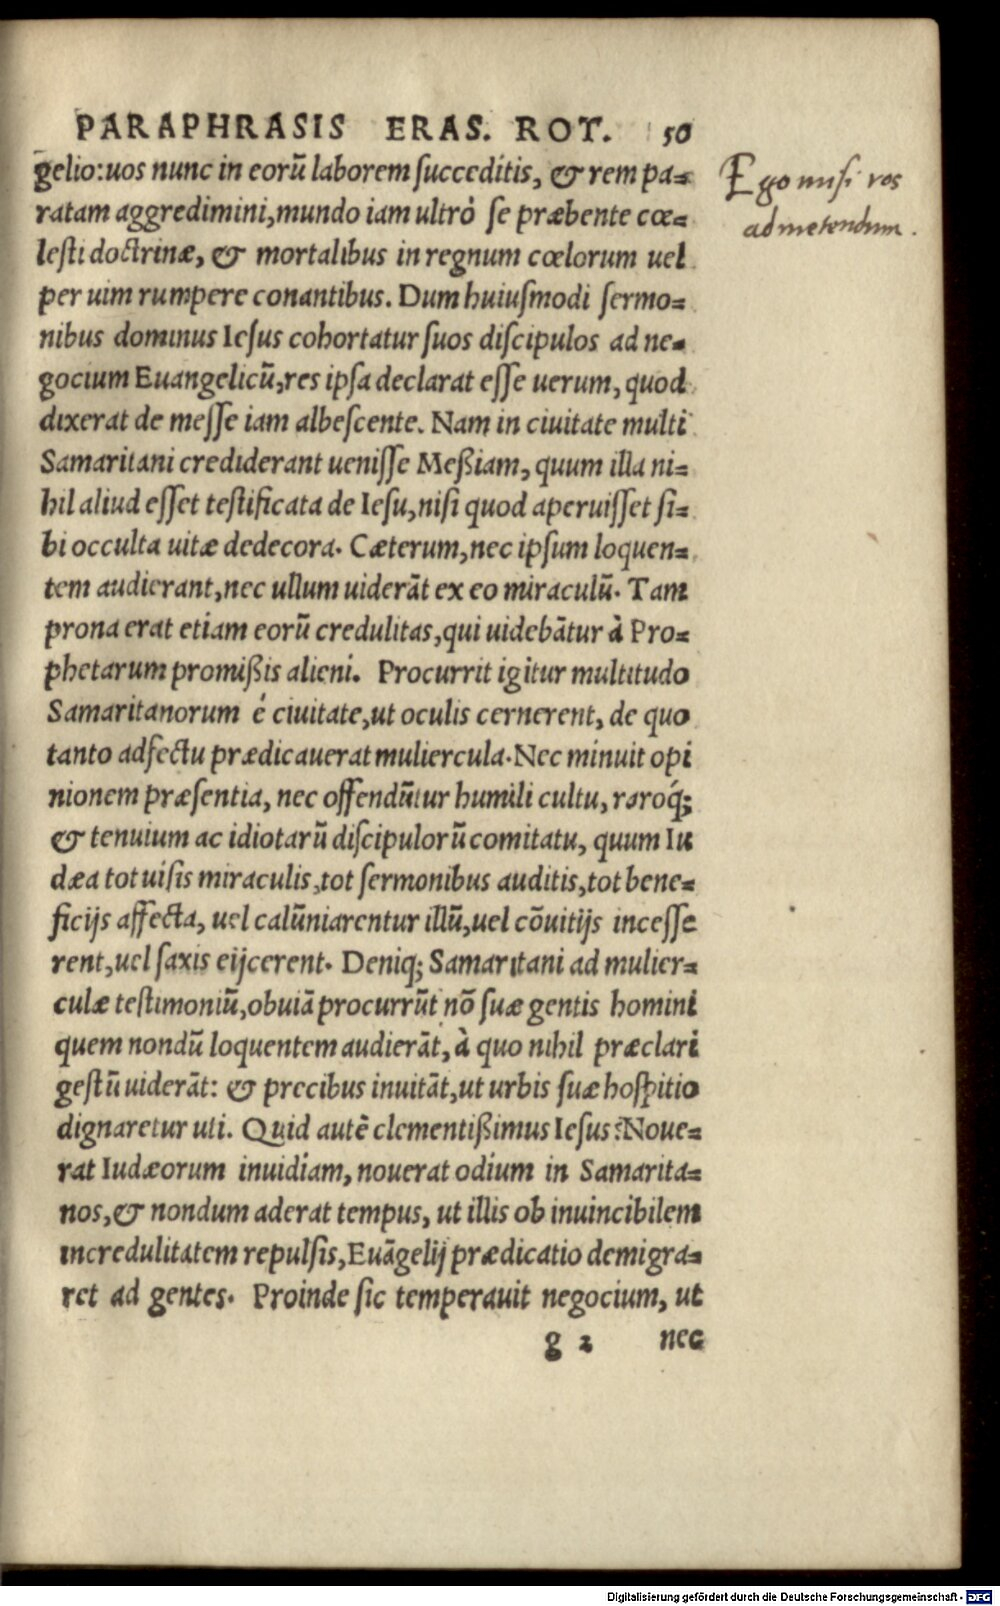 PARAPHRASIS ERAS. ROT. 50
gelio: uos nunc in eorū laborem succeditis, & rem pa=
ratam aggredimini, mundo iam ultrò se præbente cœ=
lesti doctrinæ, & mortalibus in regnum cœlorum uel
per uim rumpere conantibus. Dum huiusmodi sermo=
nibus dominus Iesus cohortatur suos discipulos ad ne=
gocium Euangelicū, res ipsa declarat esse uerum, quod
dixerat de messe iam albescente. Nam in ciuitate multi
Samaritani crediderant uenisse Meßiam, quum illa ni=
hil aliud esset testificata de Iesu, nisi quod aperuisset si=
bi occulta uitæ dedecora. Cæterum, nec ipsum loquen=
tem audierant, nec ullum uiderāt ex eo miraculū. Tam
prona erat etiam eorū credulitas, qui uidebātur à Pro=
phetarum promißis alieni. Procurrit igitur multitudo
Samaritanorum é ciuitate, ut oculis cernerent, de quo
tanto adfectu prædicauerat muliercula. Nec minuit opi
nionem præsentia, nec offendūtur humili cultu, raroq́;
& tenuium ac idiotarū discipulorū comitatu, quum Iu
dæa tot uisis miraculis, tot sermonibus auditis, tot bene=
ficijs affecta, uel calūniarentur illū, uel cōuitijs incesse
rent, uel saxis eijcerent. Deniq; Samaritani ad mulier=
culæ testimoniū, obuiā procurrūt nō suæ gentis homini
quem nondū loquentem audierāt, à quo nihil præclari
gestū uiderāt: & precibus inuitāt, ut urbis suæ hospitio
dignaretur uti. Quid autē clementißimus Iesus? Noue=
rat Iudæorum inuidiam, nouerat odium in Samarita=
nos, & nondum aderat tempus, ut illis ob inuincibilem
incredulitatem repulsis, Euāgelij prædicatio demigra=
ret ad gentes. Proinde sic temperauit negocium, ut
g 2 nec
Ego misi vos
ad metendum.
Digitalisierung gefördert durch die Deutsche Forschungsgemeinschaft - DFG